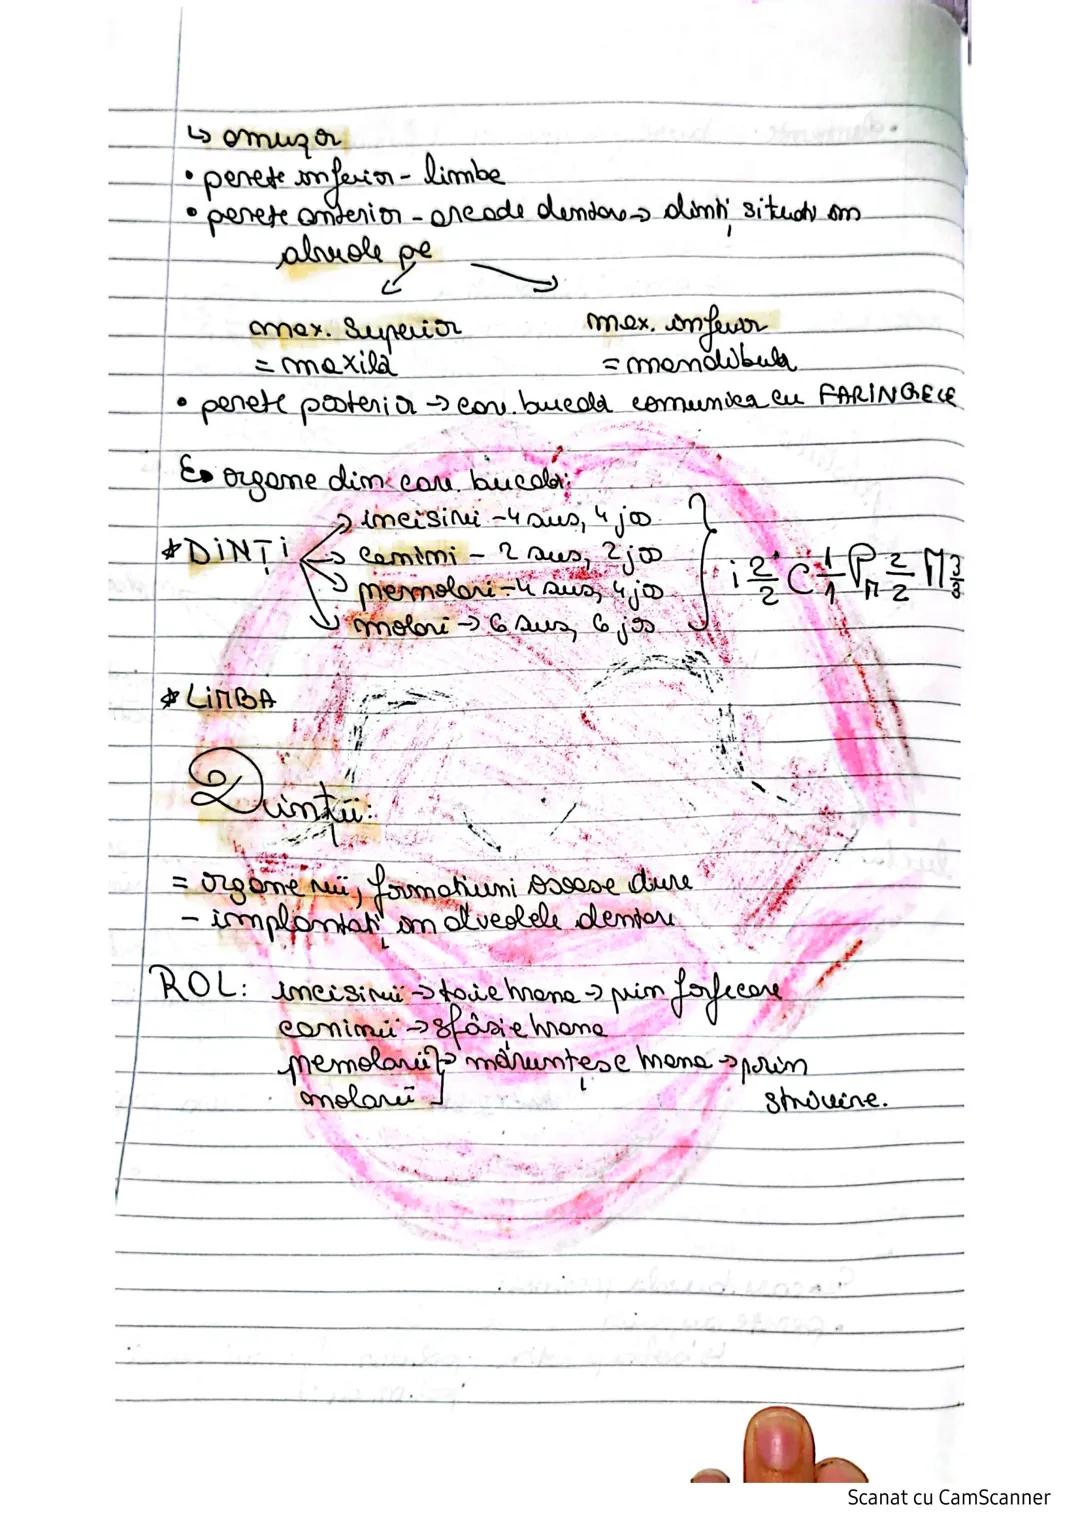 ↳ omușor
• perete inferior - limba
• perete anterior - arcade dentare → dinți situați în
alveole pe
max. superior max. inferior
= maxilă = mandibula
• perete posterior → cav. bucală comunică cu FARINGELE
organe din cav. bucală:
incisivi - 4 sus, 4 jos
* DINȚI → canini - 2 sus, 2 jos i 2/2 C 1/1 P 2/2 M 3/3
premolari - 4 sus, 4 jos
molari → 6 sus, 6 jos
* LIMBA
Dinții:
= organe vii, formațiuni osoase dure
- implantați în alveolele dentare
ROL: incisivii → taie hrana → prin forfecare
caninii → sfâșie hrana
premolarii → mărunțesc hrana → prin
molarii strivire.
Scanat cu CamScanner